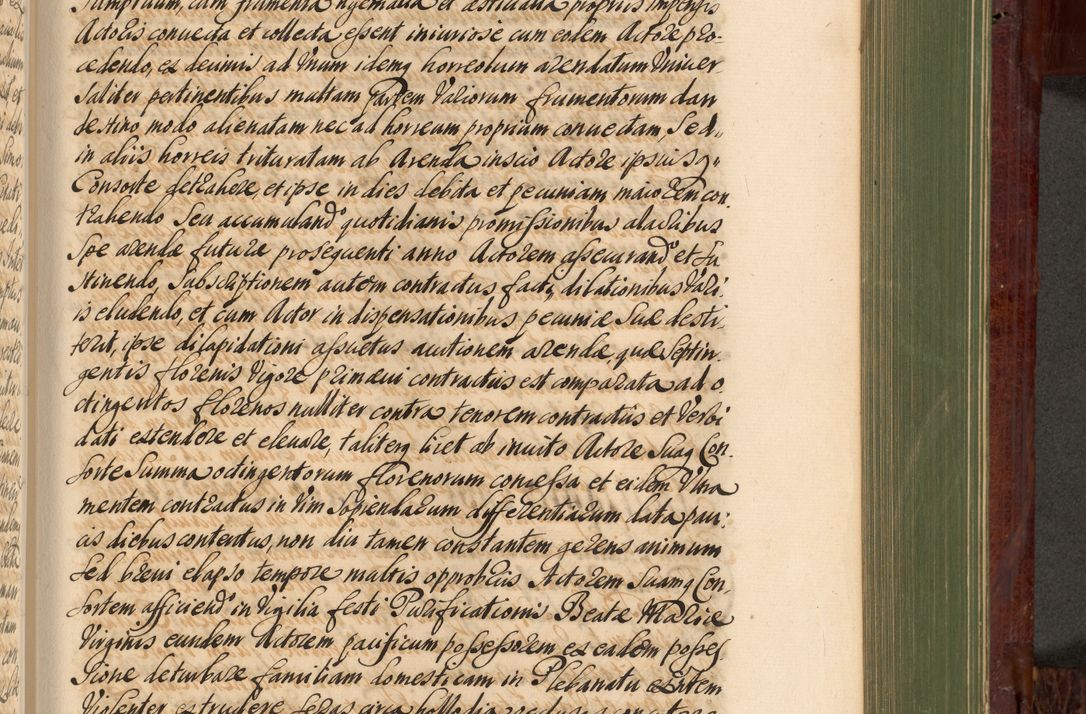 Sumptuum, cum frumenta hyemalia et aestivalia propriis impensis
Actoris convecta et collecta essent iniuriose cum eodem Actore pro-
cedendo, ex decimis ad Unum idemq horreolum arendatum Univer-
saliter pertinentibus multam Partem Variorum frumentorum clan
destino modo alienatam nec ad horreum proprium convectam Sed,
in aliis horreis trituratam ab Arenda inscio Actore ipsiusq
Consorte detrahere et ipse in dies debita et pecuniam maiorem con
trahendo Seu accumuland quotidianis promissionibus alacribus
Spe arendae futurae prosequenti anno Actorem assecurand et Su
stinendo, Subscriptionem autem contractus facti, dilationibus Vari
is eludendo, et cum Actor in dispensationibus pecuniae Suae desti
terit, ipse dilapidationi assuetus auctionem arendae quae Septin
gentis florenis Vigore primaevi contractus est comparata ad o
ctingentos florenos nulliter contra tenorem contractus et Verbi
dati extendere et elevare, taliterq licet ab invito Actore Suaq Con-
sorte Summa octingentorum florenorum concessa et eidem Una
mentem contractus in Vim Sapiendarum differentiarum data pau-
cis diebus contentus, non diu tamen constantem gerens animum
Sed brevi elapso tempore multis opprobriis Actorem Suamq Con
sortem afficiend in Vigilia festi Purificationis Beatae Mariae
Virginis eundem Actorem pacificum possessorem ex eadem posses
sione deturbare familiam domesticam in Plebanatu existentem
Violenter extrudere seras